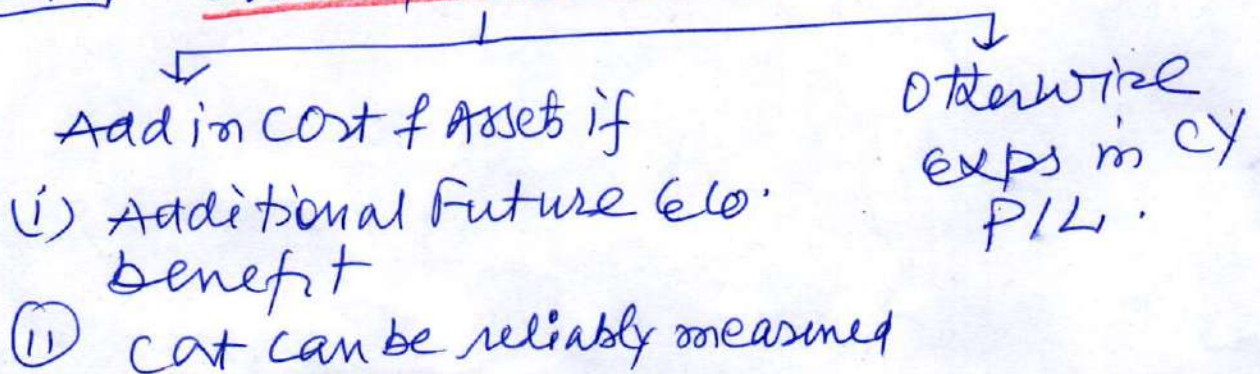 Add in cost of Asset if
(i) Additional Future Eco.
benefit
(ii) cost can be reliably measured
Otherwise
exps in CY
P/L.